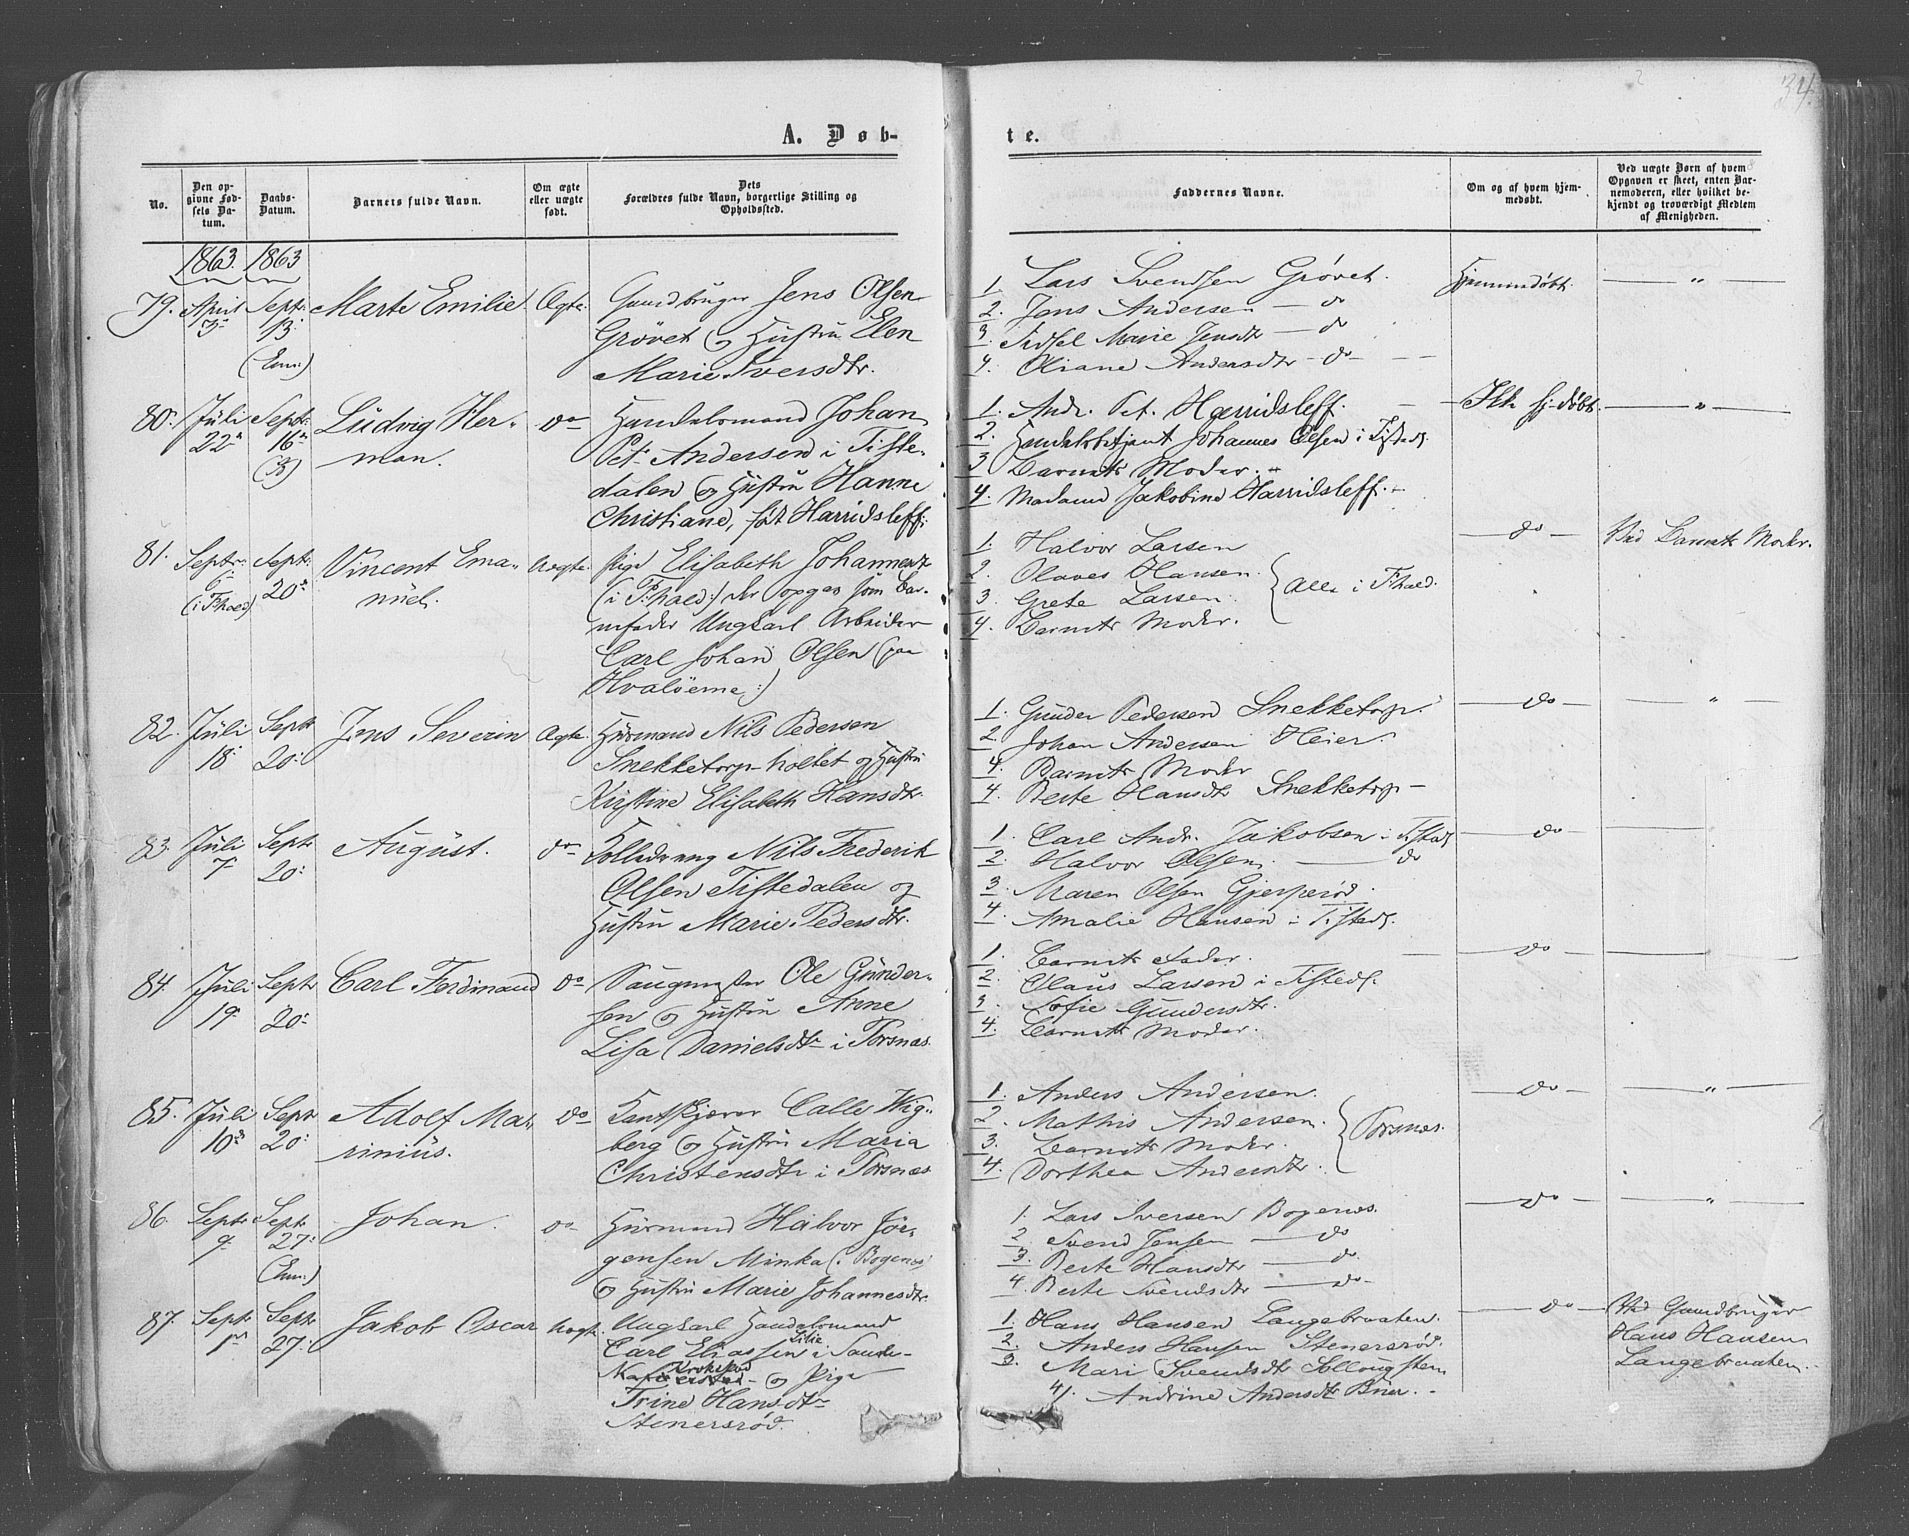 34.
A. Døb-
te.
No.
Den op-
givne Fød-
sels Da-
tum.
Daabs-
Datum.
Barnets fulde Navn.
Om ægte
eller uægte
født.
Dets
Forældres fulde Navn, borgerlige Stilling og
Opholdssted.
Faddernes Navne.
Om og af hvem hjem-
medøbt.
Ved uægte Børn af hvem
Opgaven er skeet, enten Bar-
nemoderen, eller hvilket be-
kjendt og troværdigt Medlem
af Menigheden.
1863. 1863
79. April 3 Sept: 13: (Enn:) Marte Emilie Ægte. Gaardbruger Jens Olsen
Grøvet og Hustru Elen
Marie Iversdtr.
1. Lars Svendsen Grøvet.
2. Jens Andersen — do
3. Sidsel Marie Jensdtr — do
4. Oliane Andersdtr — do —
Hjemmedøbt. — " —
80. Juli 22 Sept: 16 (K) Ludvig Her-
man. do Handelsmand Johan
Pet. Andersen i Tiste-
dalen og Hustru Hanne
Christiane, født Harridsleff.
1. Andr. Pet. Harridsleff.
2. Handelsbetjent Johannes Olsen i Tistedl.
3 Barnets Moder.
4. Madame Jakobine Harridsleff. -
Ikke hj-døbt. — " —
81. Septr: 6 (i F:hald) Sept: 20: Vincent Ema-
nuel. Uægte. Pige Elisabeth Johannesd
(i F:hald:) der opgav som Bar-
nefader Ungkarl Arbeider
Carl Johan Olsen (paa
Hvaløerne:)
1. Halvor Larsen
2. Olaves Hansen.
3 Grete Larsen.
4. Barnets Moder.
Alle i F:hald.
— do — Ved Barnets Moder.
82. Juli 18: Septr 20: Jens Severin Ægte. Husmand Nils Pedersen
Snekketorp-holtet og Hustru
Kirstine Elisabeth Hansdtr.
1. Gunder Pedersen Snekketorp.
2. Johan Andersen Heier.
4. Barnets Moder
4. Berte Hansdtr Snekketorp —
— do — — " —
83. Juli 7 Septr 20: August. do Nils Frederik
Olsen Tistedalen og
Hustru Marie Pedersdtr.
1. Carl Andr. Jakobsen i Tistedl
2. Halvor Olsen. — do
3 Maren Olsen Gjerperød.
4. Amalie Hansen i Tistedl.
— do —
84. Juli 19 Septr 20: Carl Ferdinand do Saugmester Ole Gunder-
sen og Hustru Anne
Lisa Danielsdtr i Torsnæs.
1. Barnets Fader.
2. Olaus Larsen i Tistedl.
3. Sofie Gundersdtr.
4. Barnets Moder.
— do —
85. Juli 10 Septr 20: Adolf Ma-
rinius. do Kantskjærer Calle Wig-
berg og Hustru Maria
Christensdtr i Torsnæs
1. Anders Andersen.
2. Mathis Andersen.
3. Barnets Moder.
4. Dorthea Andersdtr.
Torsnæs.
— do — — " —
86. Septr 9 Septr 27: (Enn:) Johan. do Husmand Halvor Jør-
gensen Minka (: Bogenes
og Hustru Marie Johannesdtr
1. Lars Iversen Bogenes.
2 Svend Jensen — do
3. Berte Hansdtr — do.
4. Berte Svendsdtr — do —
— do — — " —
87. Septr 1 Septr 27: Jakob Oscar Uægt. Ungkarl Handelsmand
Lilie
Carl Eliassen i Sande-
Krokstad
og Pige
Trine Hansdtr
Stenersrød.
1. Hans Hansen Langebraaten.
2. Anders Hansen Stenersrød.
3. Mari Svendsdtr
4. Andrine Andersdtr Brier. -
— do — Ved Gaardbruger
Hans Hansen
Langebraaten.